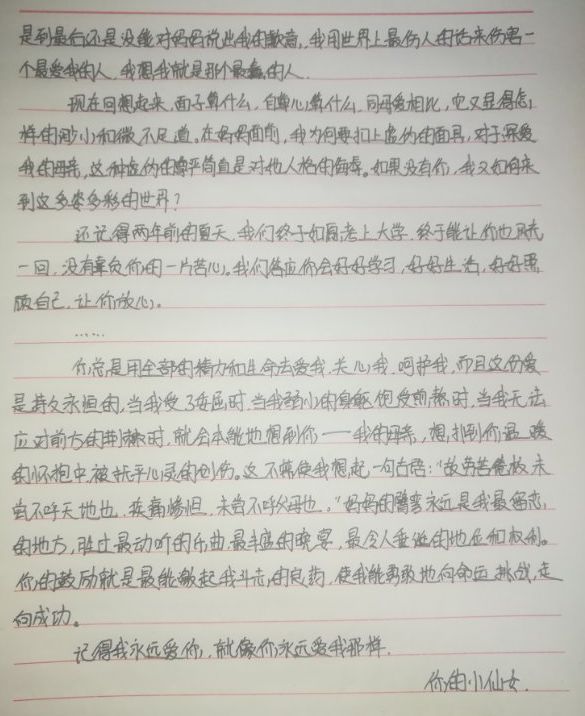 是到最后还是没能对妈妈说出我的歉意,我用世界上最伤人的话来伤害一
个最爱我的人,我想我就是那个最蠢的人.
现在回想起来,面子算什么,自尊心算什么,同母爱相比,它又显得怎
样的渺小和微不足道。在妈妈面前,我为何要扣上虚伪的面具,对于深爱
我的母亲,这种虚伪的 简直是对他人格的侮辱。如果没有你,我又如何来
到这多姿多彩的世界?
还记得两年前的夏天,我们终于如愿考上大学,终于能让你也风光
一回,没有辜负你的一片苦心。我们答应你会好好学习,好好生活,好好照
顾自己,让你放心。
......
你总是用全部的精力和生命去爱我,关心我,呵护我,而且这份爱
是持久永恒的,当我受了委屈时,当我弱小的身躯饱受煎熬时,当我无法
应对前方的荆棘时,就会本能地想到你——我的母亲,想扑到你最暖
的怀抱中被抚平心灵的创伤。这不禁使我想起一句古语:“故劳苦倦极,未
尝不呼天地也,疾痛惨怛,未尝不呼父母也。”妈妈的臂弯永远是我最留恋
的地方,胜过最动听的乐曲,最丰盛的晚宴,最令人垂涎的地位和权利。
你的鼓励就是最能激起我斗志的良药,使我能勇敢地向命运挑战,走
向成功。
记得我永远爱你,就像你永远爱我那样.
你的小仙女.